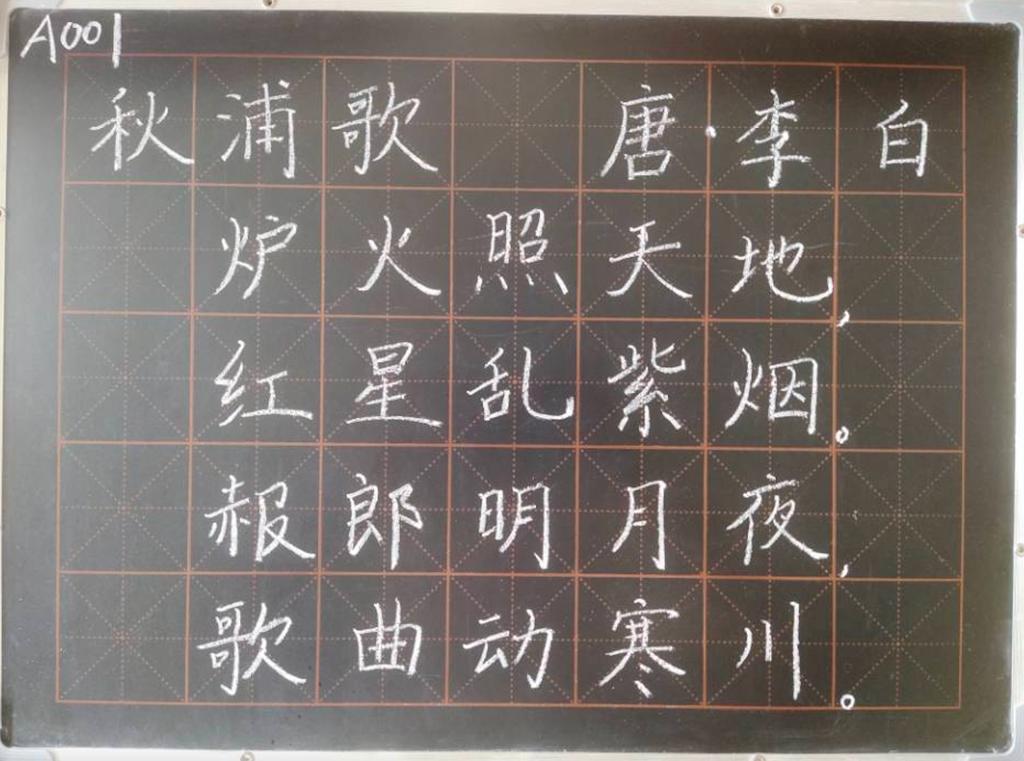 A001
秋浦歌 唐·李白
炉火照天地，
红星乱紫烟。
赧郎明月夜，
歌曲动寒川。